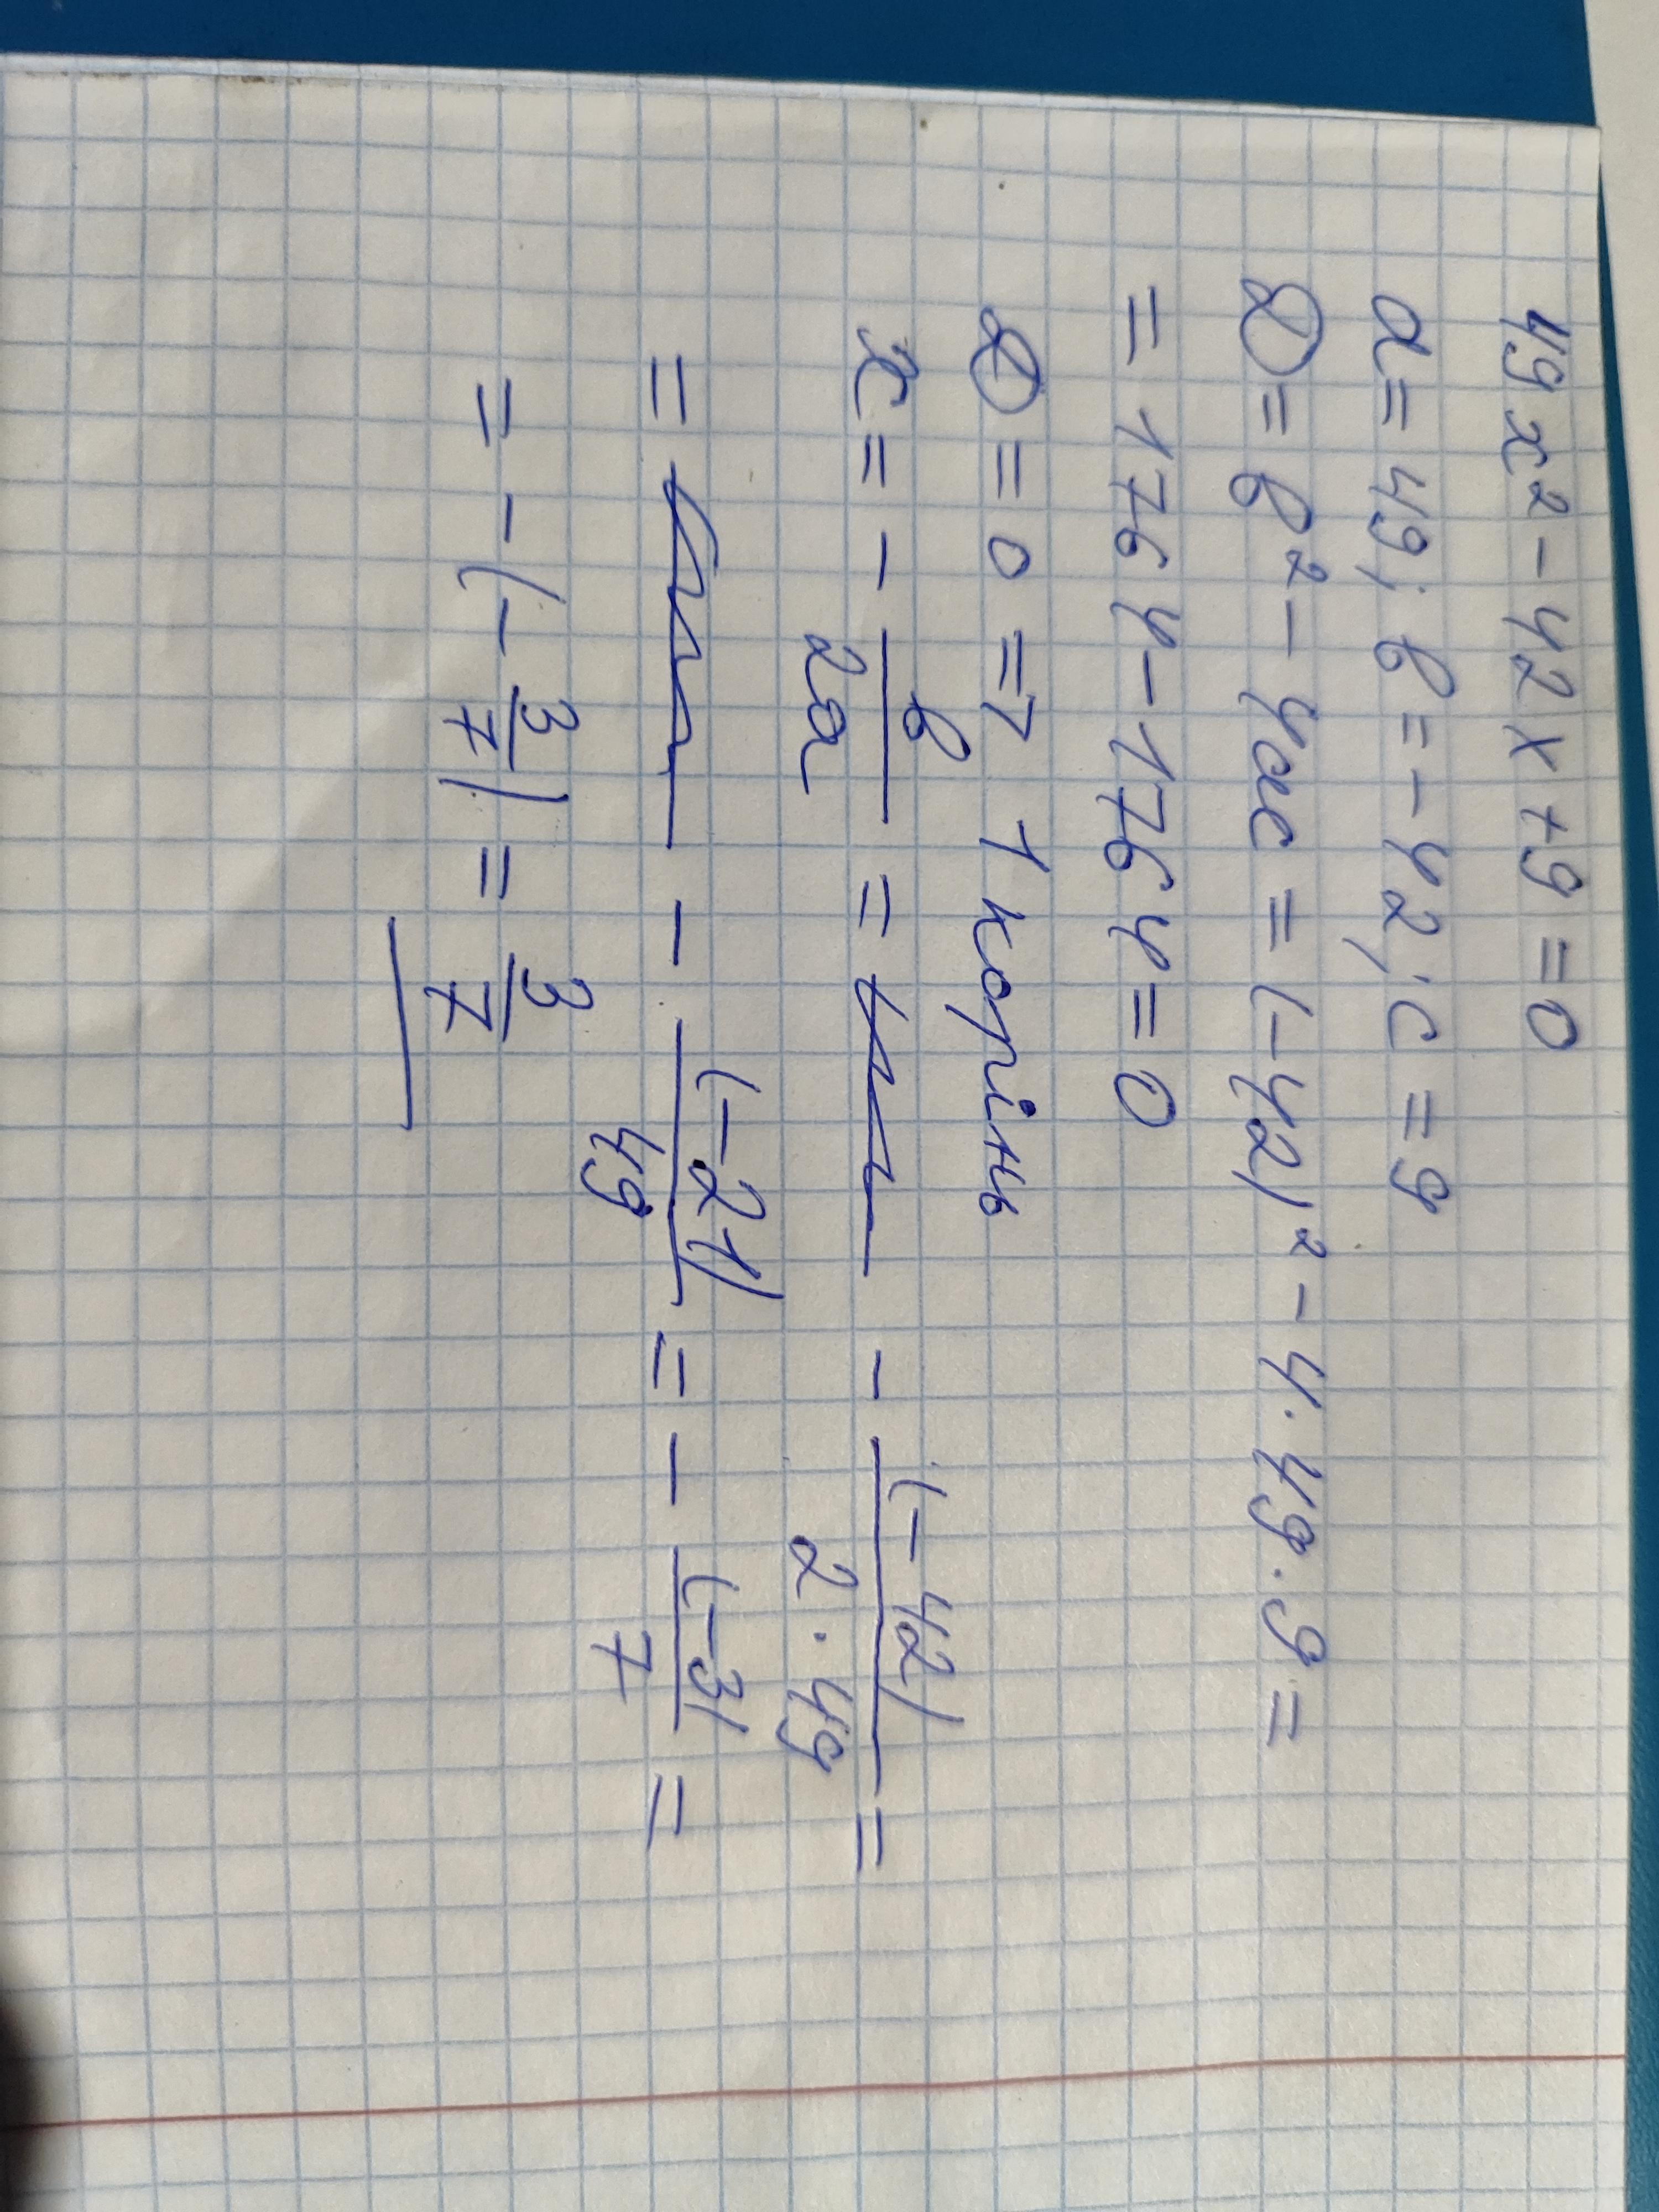 49x² - 42x + 9 = 0
a = 49; b = -42; c = 9
D = b² - 4ac = (-42)² - 4 · 49 · 9 =
= 1764 - 1764 = 0
D = 0 => 1 корінь
x = - b/2a = - (-42)/2 · 49 =
= - (-21)/49 = - (-3)/7 =
= - (- 3/7) = 3/7